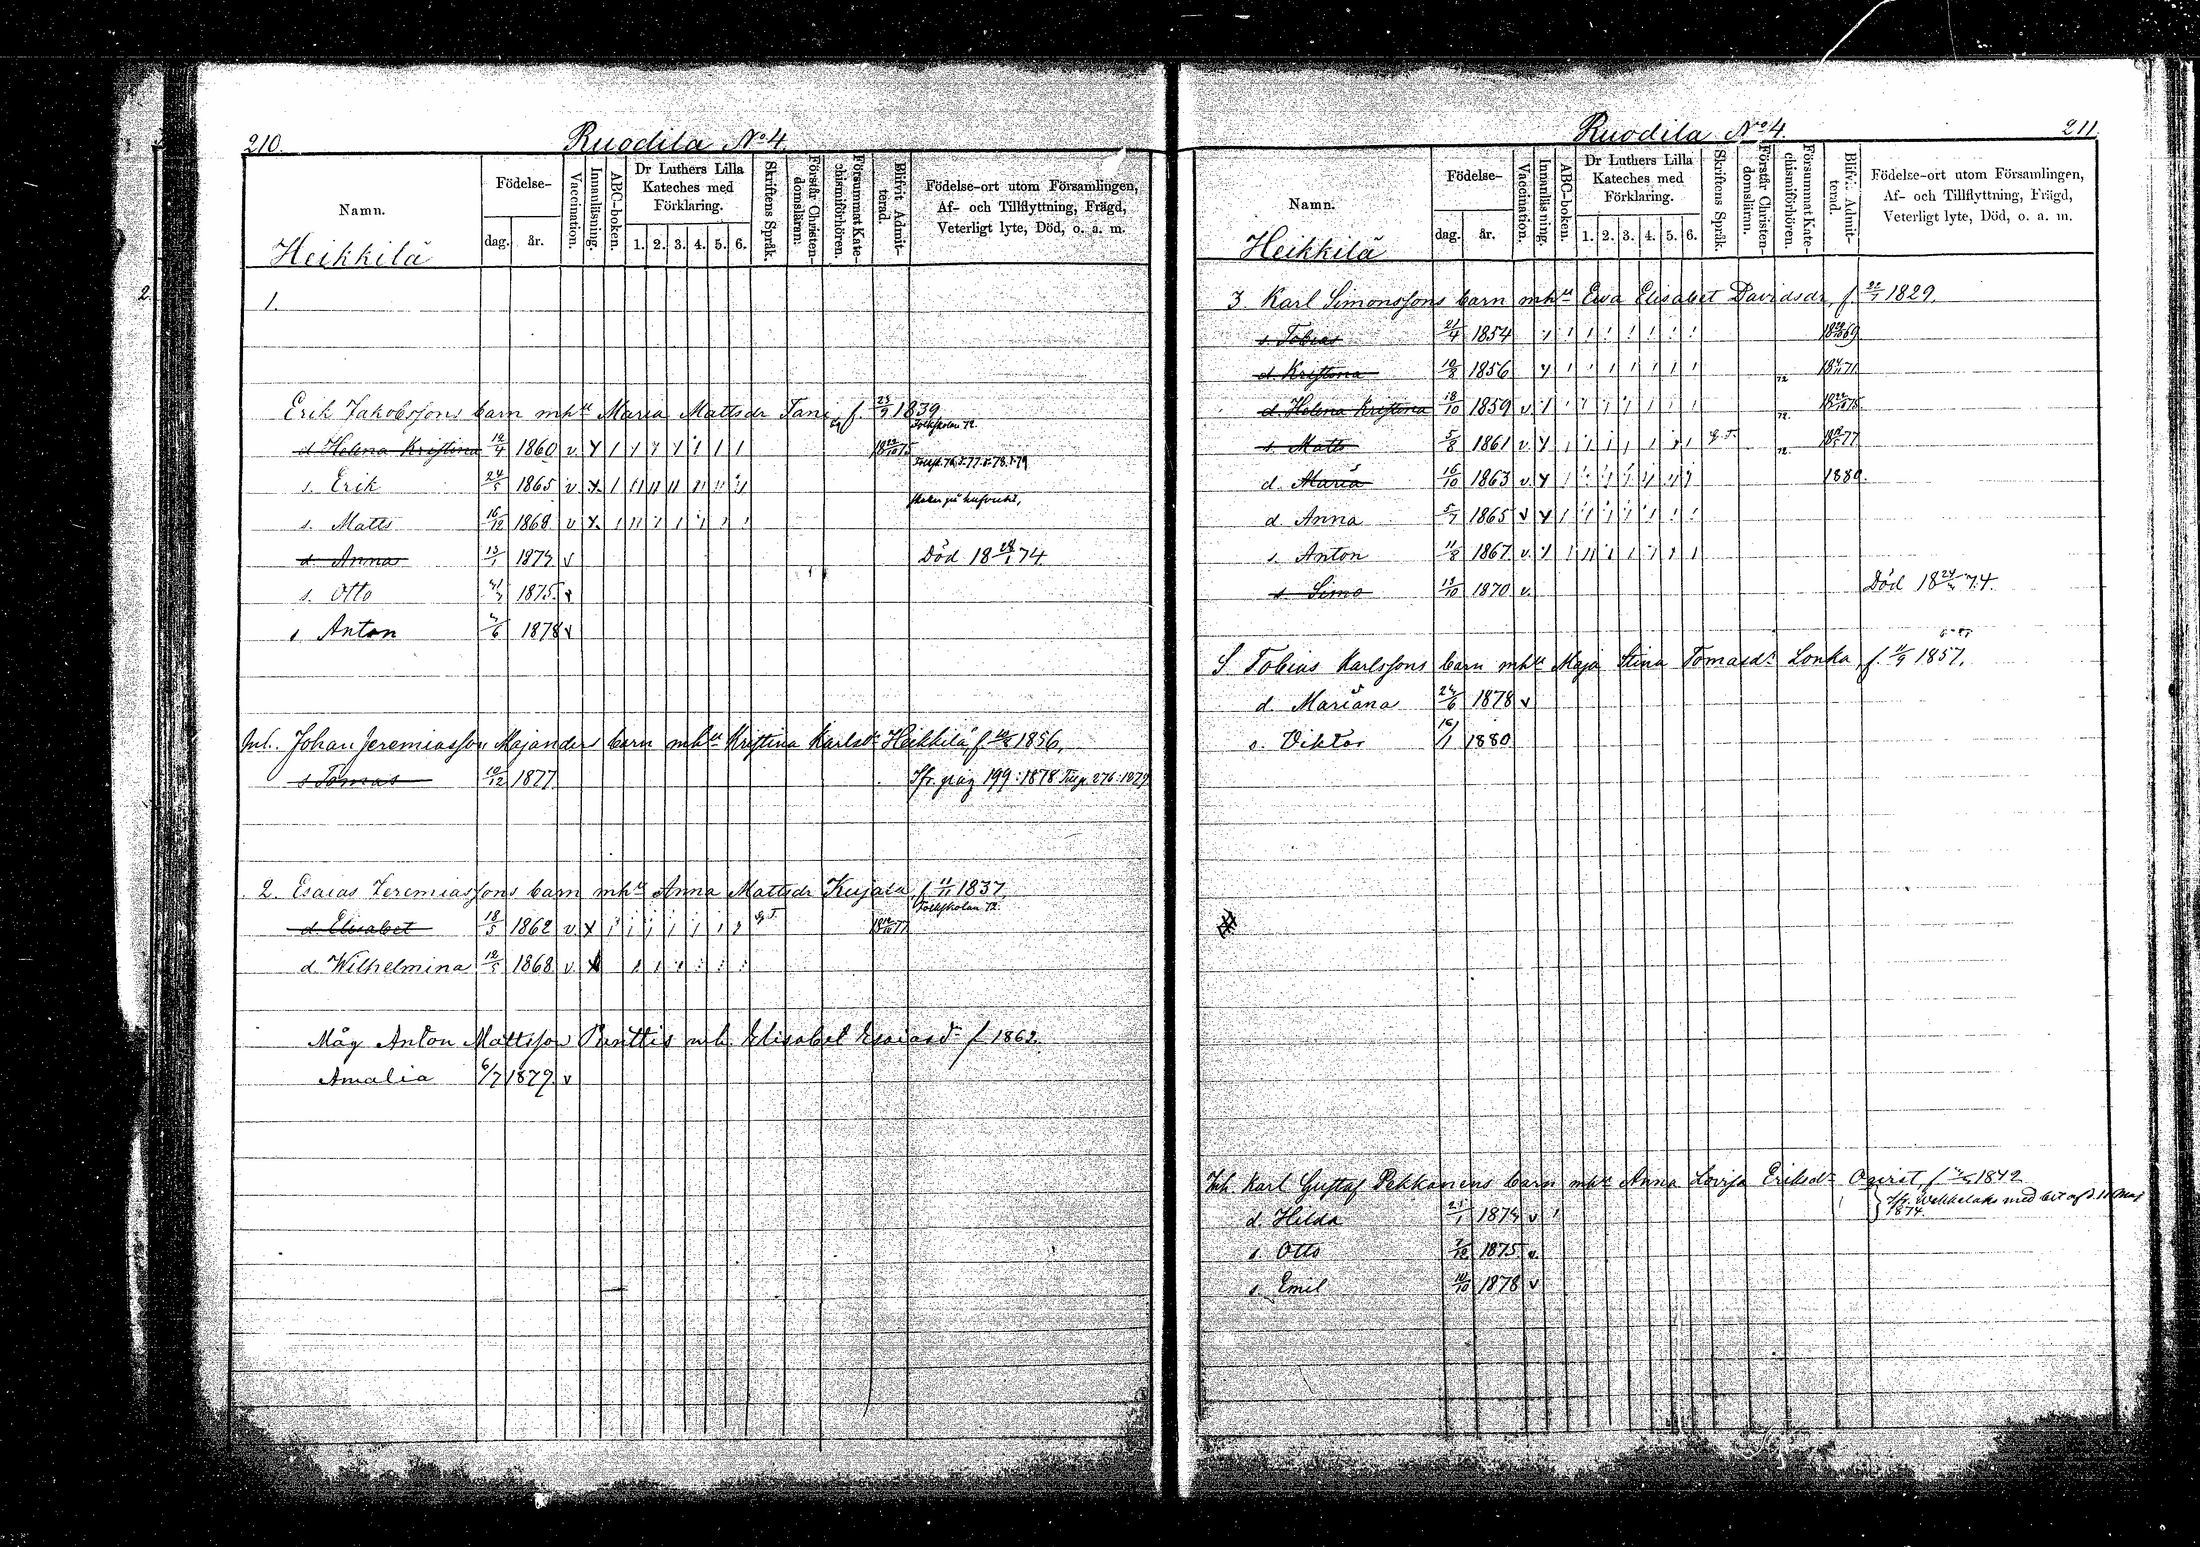 210.
Ruodila No 4.
Namn.
Födelse-
dag. år.
Vaccination.
Innanläsning.
ABC-boken.
Dr Luthers Lilla Kateches med Förklaring.
1. 2. 3. 4. 5. 6.
Skriftens Språk.
Förstår Christendomsläran.
Försummat Katechismiförhören.
Blifvit Admitterad.
Födelse-ort utom Församlingen, Af- och Tillflyttning, Frägd, Veterligt lyte, Död, o. a. m.
Heikkilä
2.
1.
Erik Jakobssons barn mhu Maria Mattsdr Tani, f. 1839
Folkskolan 72.
d. Helena Kristina 1860 v.
s. Erik 24/5 1865 v
s. Matts 16/12 1868 v
d. Anna 13/1 1874 v Död 18 28/1 74.
s. Otto 1875. v
s Anton 1878 v
Inh. Johan Jeremiasson Majanders barn mhu Kristina Karlsdr Heikkilä f. 1856,
s Tomas 10/12 1877 199:1878 276:1879
2. Esaias Jeremiassons barn mhu Anna Mattsdr Kujala, f 11/11 1837,
Folkskolan 72.
d. Elisabet 18/5 1862 v.
d. Wilhelmina 12/5 1868 v.
Måg Anton Mattsson Penttis mh. Elisabet Esaiasdr f 1862.
Amalia 6/7 1879. v
Ruodila No 4.
211
Namn.
Födelse-
dag. år.
Vaccination.
Innanläsning.
ABC-boken.
Dr Luthers Lilla Kateches med Förklaring.
1. 2. 3. 4. 5. 6.
Skriftens Språk.
Förstår Christendomsläran.
Försummat Katechismiförhören.
Blifvit Admitterad.
Födelse-ort utom Församlingen, Af- och Tillflyttning, Frägd, Veterligt lyte, Död, o. a. m.
Heikkilä
3. Karl Simonssons barn mhu Ewa Elisabet Davidsdr, f. 22/1 1829.
s. Tobias 21/4 1854
d. Kristina 10/8 1856 72
d. Helena Kristina 18/10 1859 v. 72.
s. Matts 5/8 1861 v. 72.
d. Maria 16/10 1863 v. 1880.
d Anna 5/7 1865 v
s. Anton 11/8 1867 v.
s Simo 13/10 1870 v. Död 18 24/2 74.
S Tobias Karlssons barn mhu Maja Stina Tomasdr Lonka, f. 1857,
d. Mariana 24/6 1878 v
s. Viktor 1880
Inh Karl Gustaf Pekkanens barn mhu Anna Lovisa Eriksdr f 1842
d. Hilda 1874 v
s. Otto 1875 v.
s. Emil 1878 v
1874.